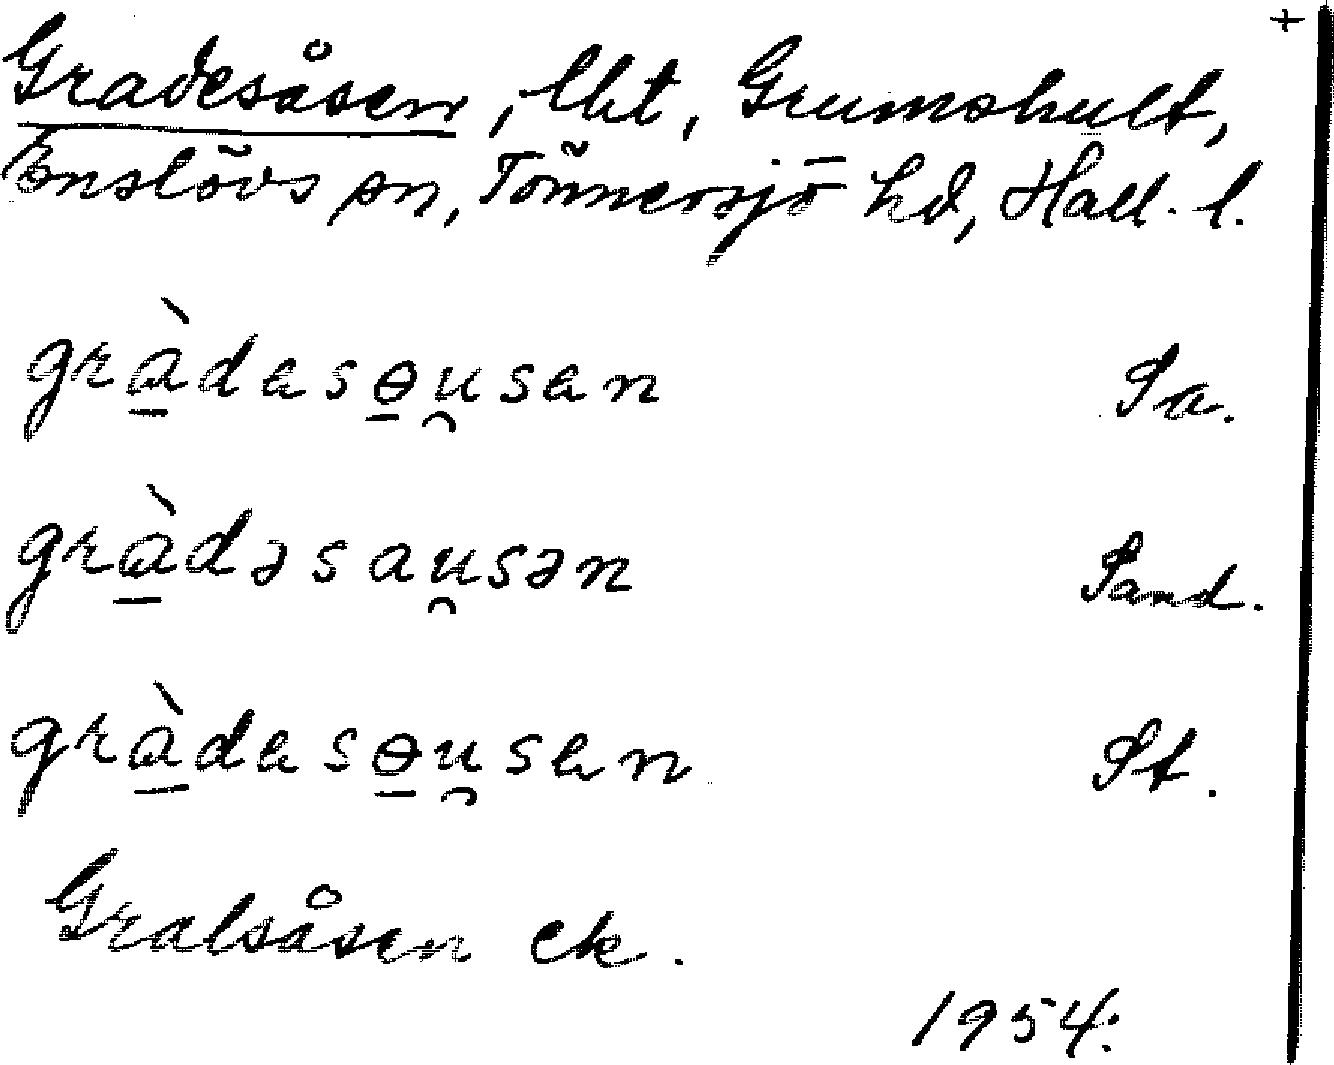 +
Gradesåsen, lht, Grumshult,
Enslövs sn, Tönnersjö hd, Hall. l.
gràdasɵu̯san Sa.
gràdəsau̯sən Sand.
gràdasɵu̯san St.
Gralsåsen ek.
1954: